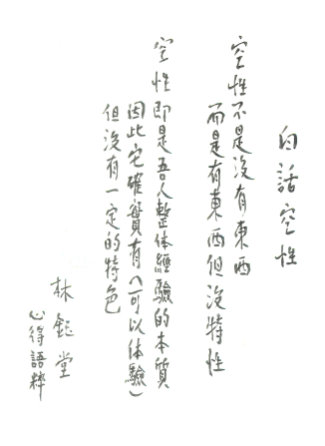 白話空性
空性不是沒有東西
而是有東西但沒特性
空性即是吾人整体經驗的本質
因此它確實有（可以体驗）
但沒有一定的特色
林鈺堂
心得語粹